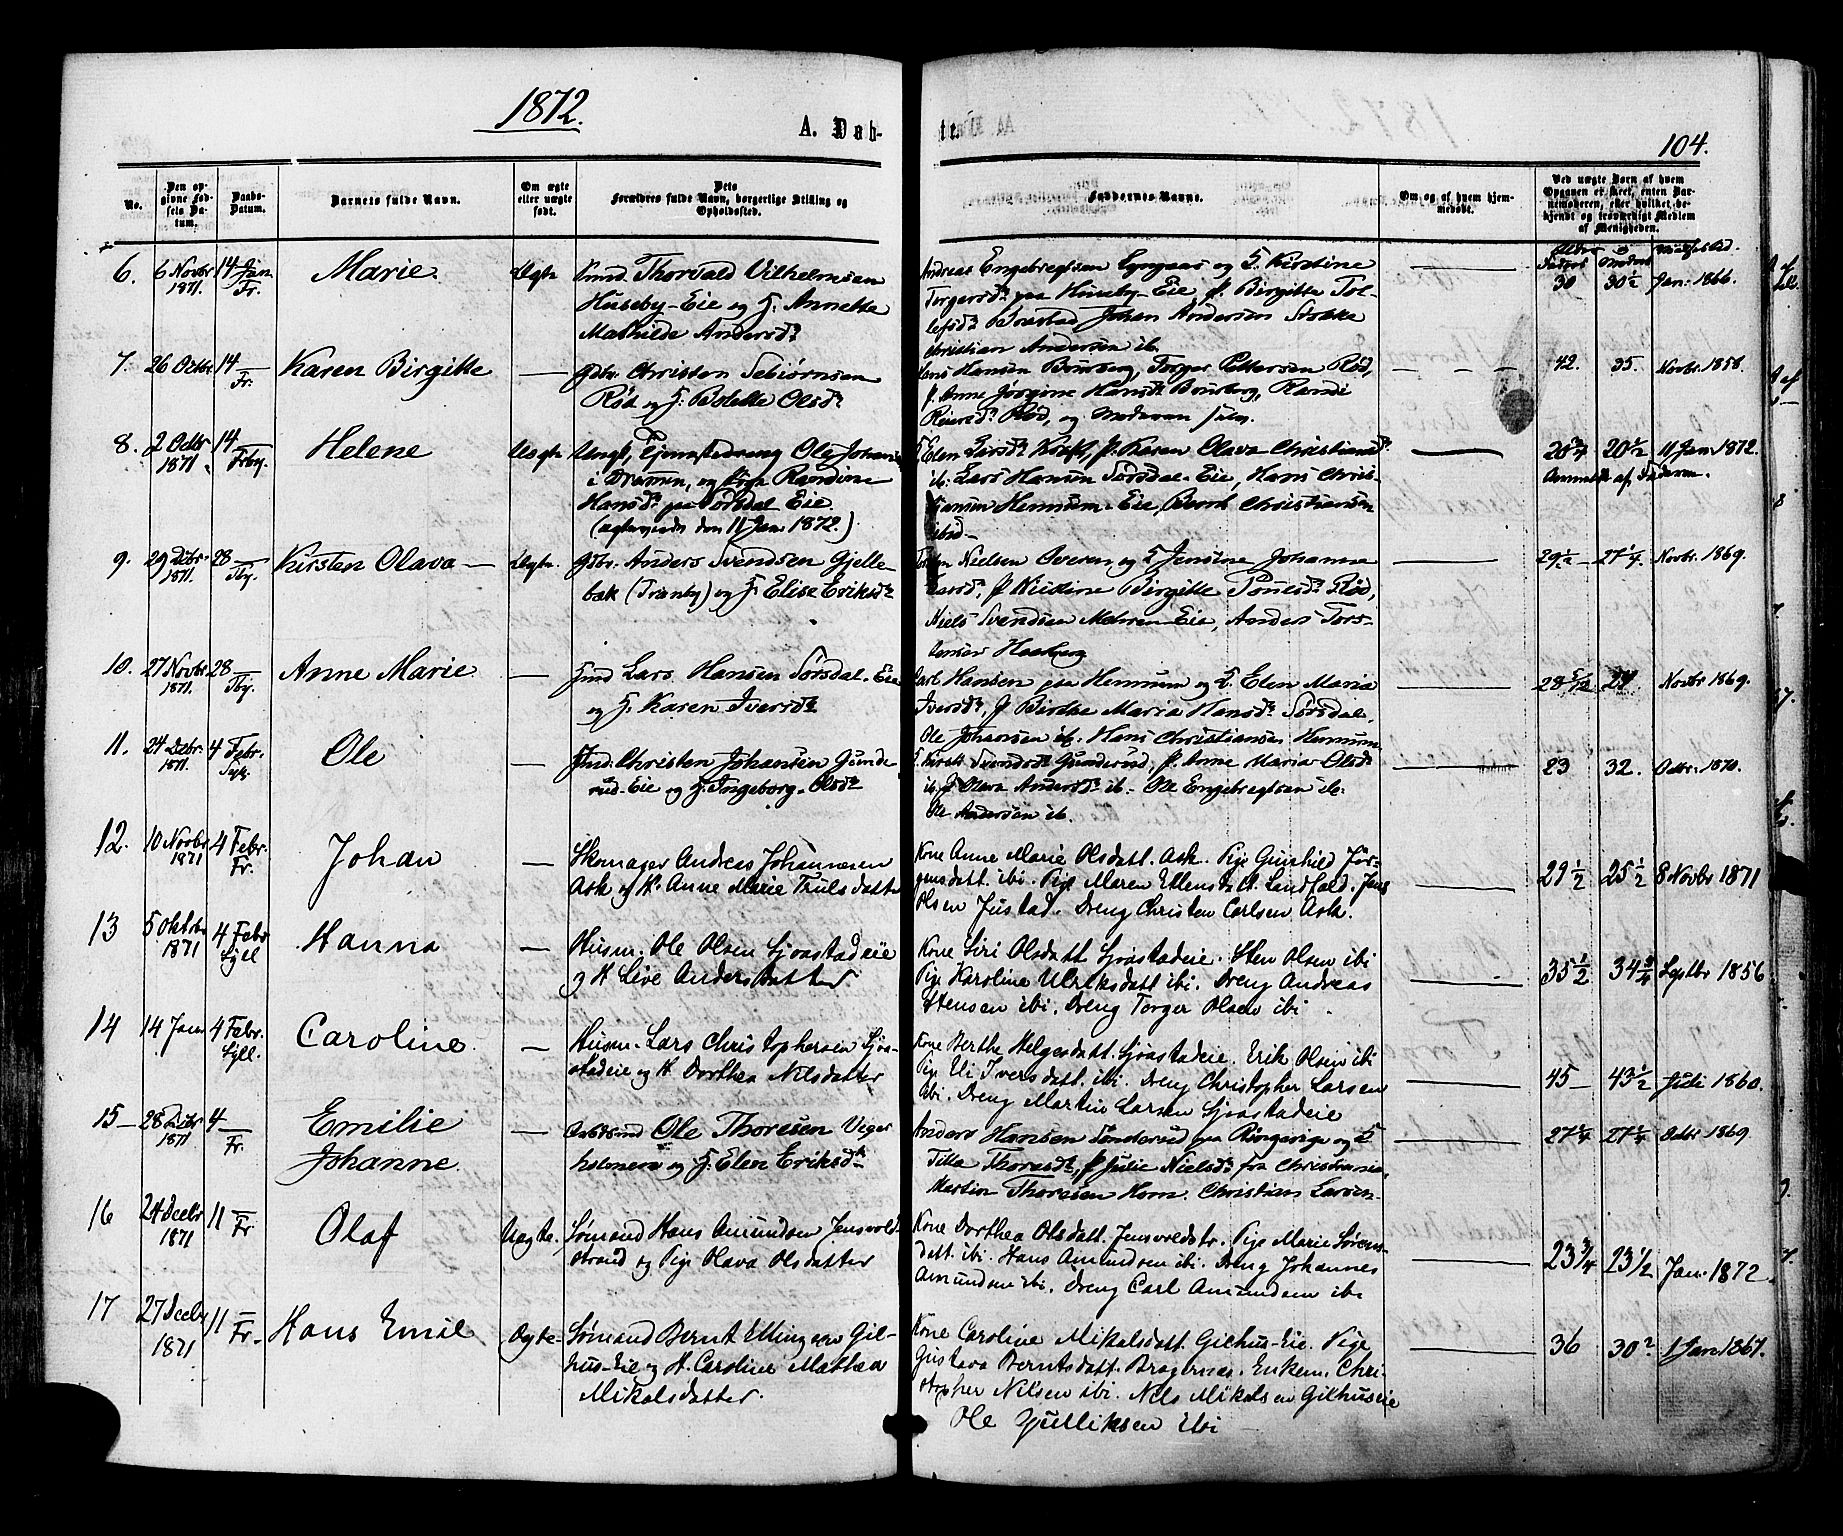 1872.
A. Døb-
te.
104.
No.
Den op-
givne Fød-
sels Da-
tum.
Daabs-
Datum.
Barnets fulde Navn.
Om ægte
eller uægte
født.
Dets
Forældres fulde Navn, borgerlige Stilling og
Opholdssted.
Faddernes Navne.
Om og af hvem hjem-
medøbt.
Ved uægte Børn af hvem
Opgaven er skeet, enten Bar-
nemoderen, eller hvilket be-
kjendt og troværdigt Medlem
af Menigheden.
6. 6 Novbr 14 Jan. Marie. Ægte
1871. Fr.
Thorvald Vilhelmsen
Huseby-Eie og H. Annette
Mathilde Andersdr
Andreas Engebregtsen og H. Kirstine
Torgersdr paa Huseby-Eie, P. Birgitte Tol-
lefsdr Johan Andersen Stokke
Christian Andersen ib.
30 30½ Jan: 1866.
7. 26 Octbr 14 Karen Birgitte —
Fr.
Gdbr Christen Sebiørnsen
Rød og H. Bolette Olsdr
Hans Hansen Bønsberg, Torger Pettersen Rød,
P. Anne Jørgine Hansdr Bønsberg, Randi
Reiersdr Rød, og Moderen selv.
42. 35. Novbr 1858.
8. 2 Octbr 14 Helene Uægte
1871.
Ungk, Tjenestedreng Ole Johans
i Drammen, og Pige Randine
Hansdr paa Sørsdal Eie.
(ægteviede den 11 Jan 1872.)
H. Elen Larsdr P. Karen Olava Christiansdr
ib. Lars Hansen Sørsdal-Eie, Hans Chris-
tiansen Hennum-Eie, Christiansen
ibid—
20¾ 20½ 11 Jan 1872.
Anmeldt af Faderen.
9. 29 Dcbr 28 Kirsten Olava — Ægte
1871. Tby.
Gdbr. Anders Svendsen Gjelle-
bæk (Tranby) og H. Elise Eriksdr
Nielsen Overen og H. Jensine Johanne
Larsdr, P. Kirstine Birgitte Rød,
Niels Svendsen Mehren Eie, Anders Tors-
tensen
29½ 27¼ Novbr. 1869.
10. 27 Novbr 28 Anne Marie —
1871. Tby.
Lars Hansen Sørsdal-Eie
og H. Karen Iversdr
Hansen paa Hennum og H. Elen Maria
Iversdr, P. Birthe Maria Hansdr Sørsdal,
Ole Johansen ib. Hans Christiansen Hennum.
28 5/12 27 Novbr 1869.
11. 24 Dcbr. 4 Febr. Ole —
1871. Sylr.
Christen Johansen Gunde
rud-Eie og H. Ingeborg Olsdr
Svendsdr Gunderud, P. Anne Maria Olsdr
ib. P. Olava Andersdr ib. Ole Engebregtsen ib.
Ole Andersen ib.
23 32. Octbr. 1870.
12. 10 Novbr 4 Febr. Johan —
1871 Fr.
Skomager Andreas Johannesen
Ask og K. Anne Marie Trulsdatter
Kone Anne Marie Olsdatt. Ask. Pige Gunhild Jør-
gensdatt. ibi. Pige Maren Ellensdatt. Landfald. Jens
Olsen Justad. Dreng Christen Carlsen Ask.
29½ 25½ 8 Novbr 1871
13 5 Oktobr 4 Febr Hanna —
1871 Syll
Husm. Ole Olsen Sjøastadeie
og K Live Andersdatter
Kone Siri Olsdatt Sjøastadeie. Sten Olsen ibi
Pige Karoline Ulriksdatt ibi. Dreng Andreas
Stensen ibi. Dreng Torger Olsen ibi.
35½ 34¾ Septbr 1856
14 14 Jan. 4 Febr. Caroline —
Syll.
Husm. Lars Christophersen Sjøa-
stadeie og K Dorthea Nilsdatter
Kone Berthe Helgesdatt. Sjøastadeie. Erik Olsen ibi
Pige Eli Iversdatt. ibi. Dreng Christopher Larsen
ibi. Dreng Martin Larsen Sjøastadeie
45— 43½ Juli 1860.
15— 28 Dcbr 4— Emilie —
1871 Fr. Johanne.
Ole Thoresen Viger
holmen og H. Elen Eriksdr
Anders Hansen Sønderud paa Ringerige og H
Tilla Thoresdr, P. Julie Nielsdr fra Christiania,
Martin Thoresen Horn. Christian Larsen
27¼ 27¼ Octbr 1869
16 24 Decbr 11 — Olaf Uægte.
1871 Fr
Sømand Hans Amundsen Jensvold-
strand og Pige Olava Olsdatter
Kone Dorthea Olsdatt. Jensvoldstr. Pige Marie Sørens-
datt. ibi. Hans Amundsen ibi. Dreng Johannes
Amundsen ibi. Dreng Carl Amundsen ib.
23¾ 23½ Jan. 1872.
17 27 Decbr 11 — Hans Emil Ægte
1871 Fr.
Sømand Bernt Ellingsen Gil-
hus-Eie og K. Caroline Mathea
Mikalsdatter.
Kone Caroline Mikalsdatt. Gilhus-Eie. Pige
Gustava Berntsdatt. Bragernes. Enkem. Chri-
stopher Nilsen ibi. Nils Mikalsen Gilhuseie
Ole Gulliksen ibi
36 30² 1 Jan 1867.